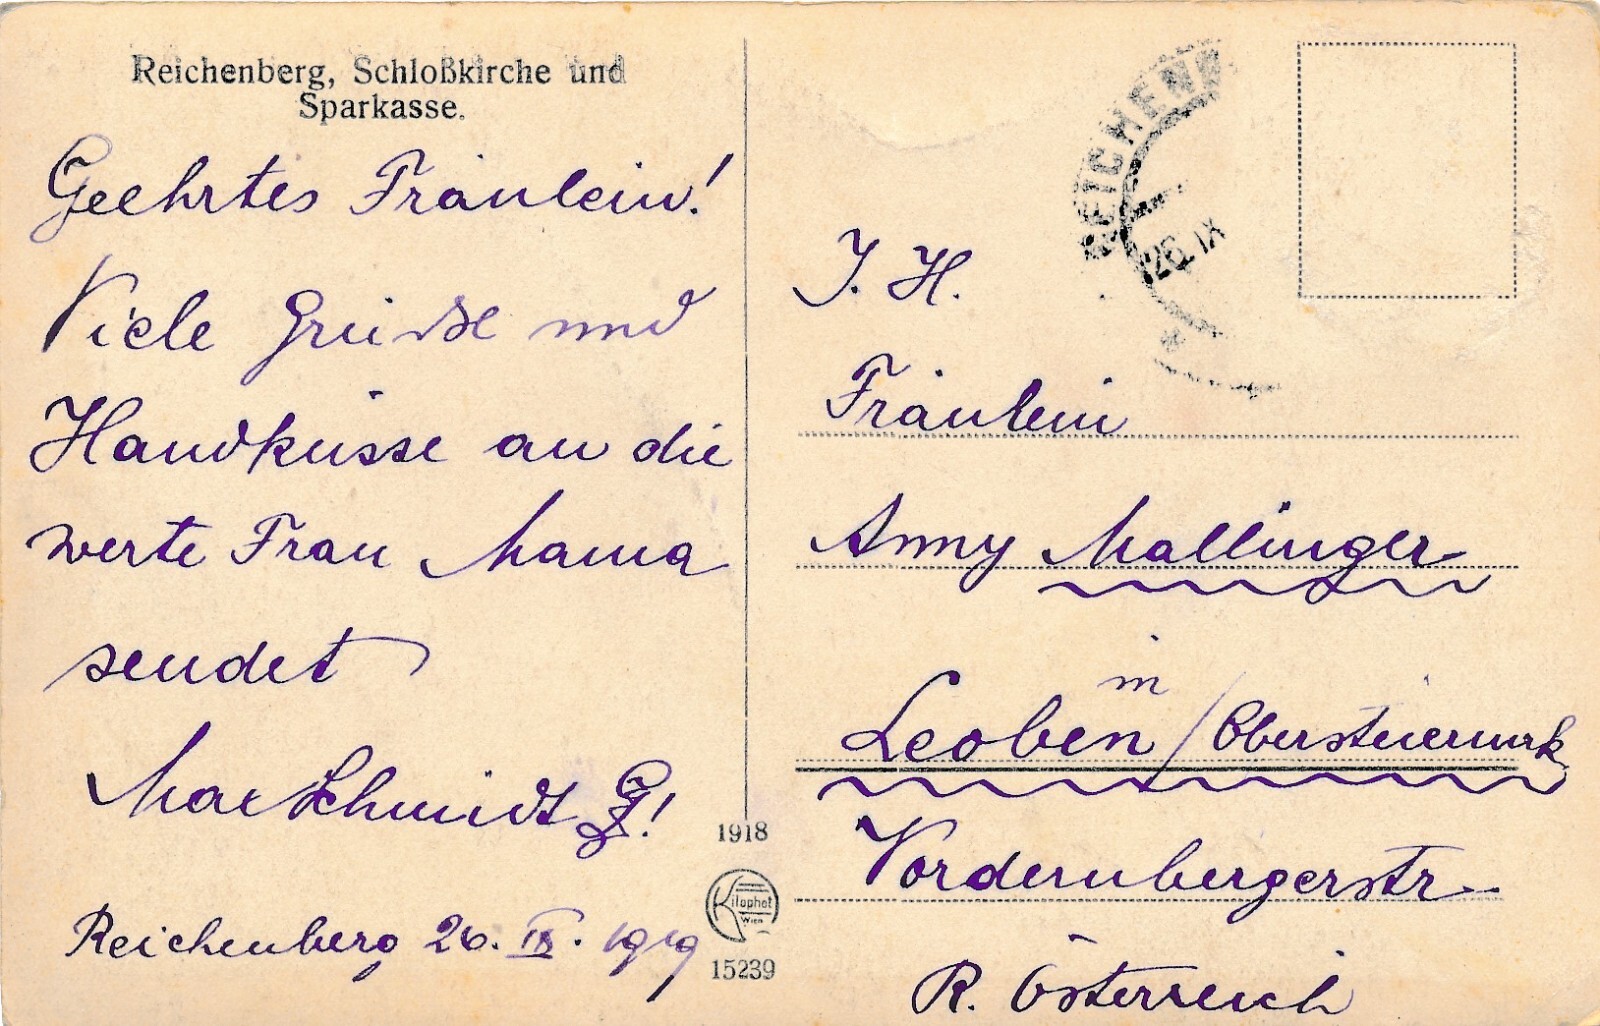 Reichenberg, Schloßkirche und
Sparkasse.
Geehrtes Fräulein!
Viele Grüsse und
Handküsse an die
werte Frau Mama
sendet
Max Schmidt
Reichenberg 26. IX. 1919
1918
Kilophot
Wien
15239
REICHENB
26. IX
I. H.
Fräulein
Anny Mallinger
in
Leoben / Obersteiermark
Vordernbergerstr.
R. Österreich